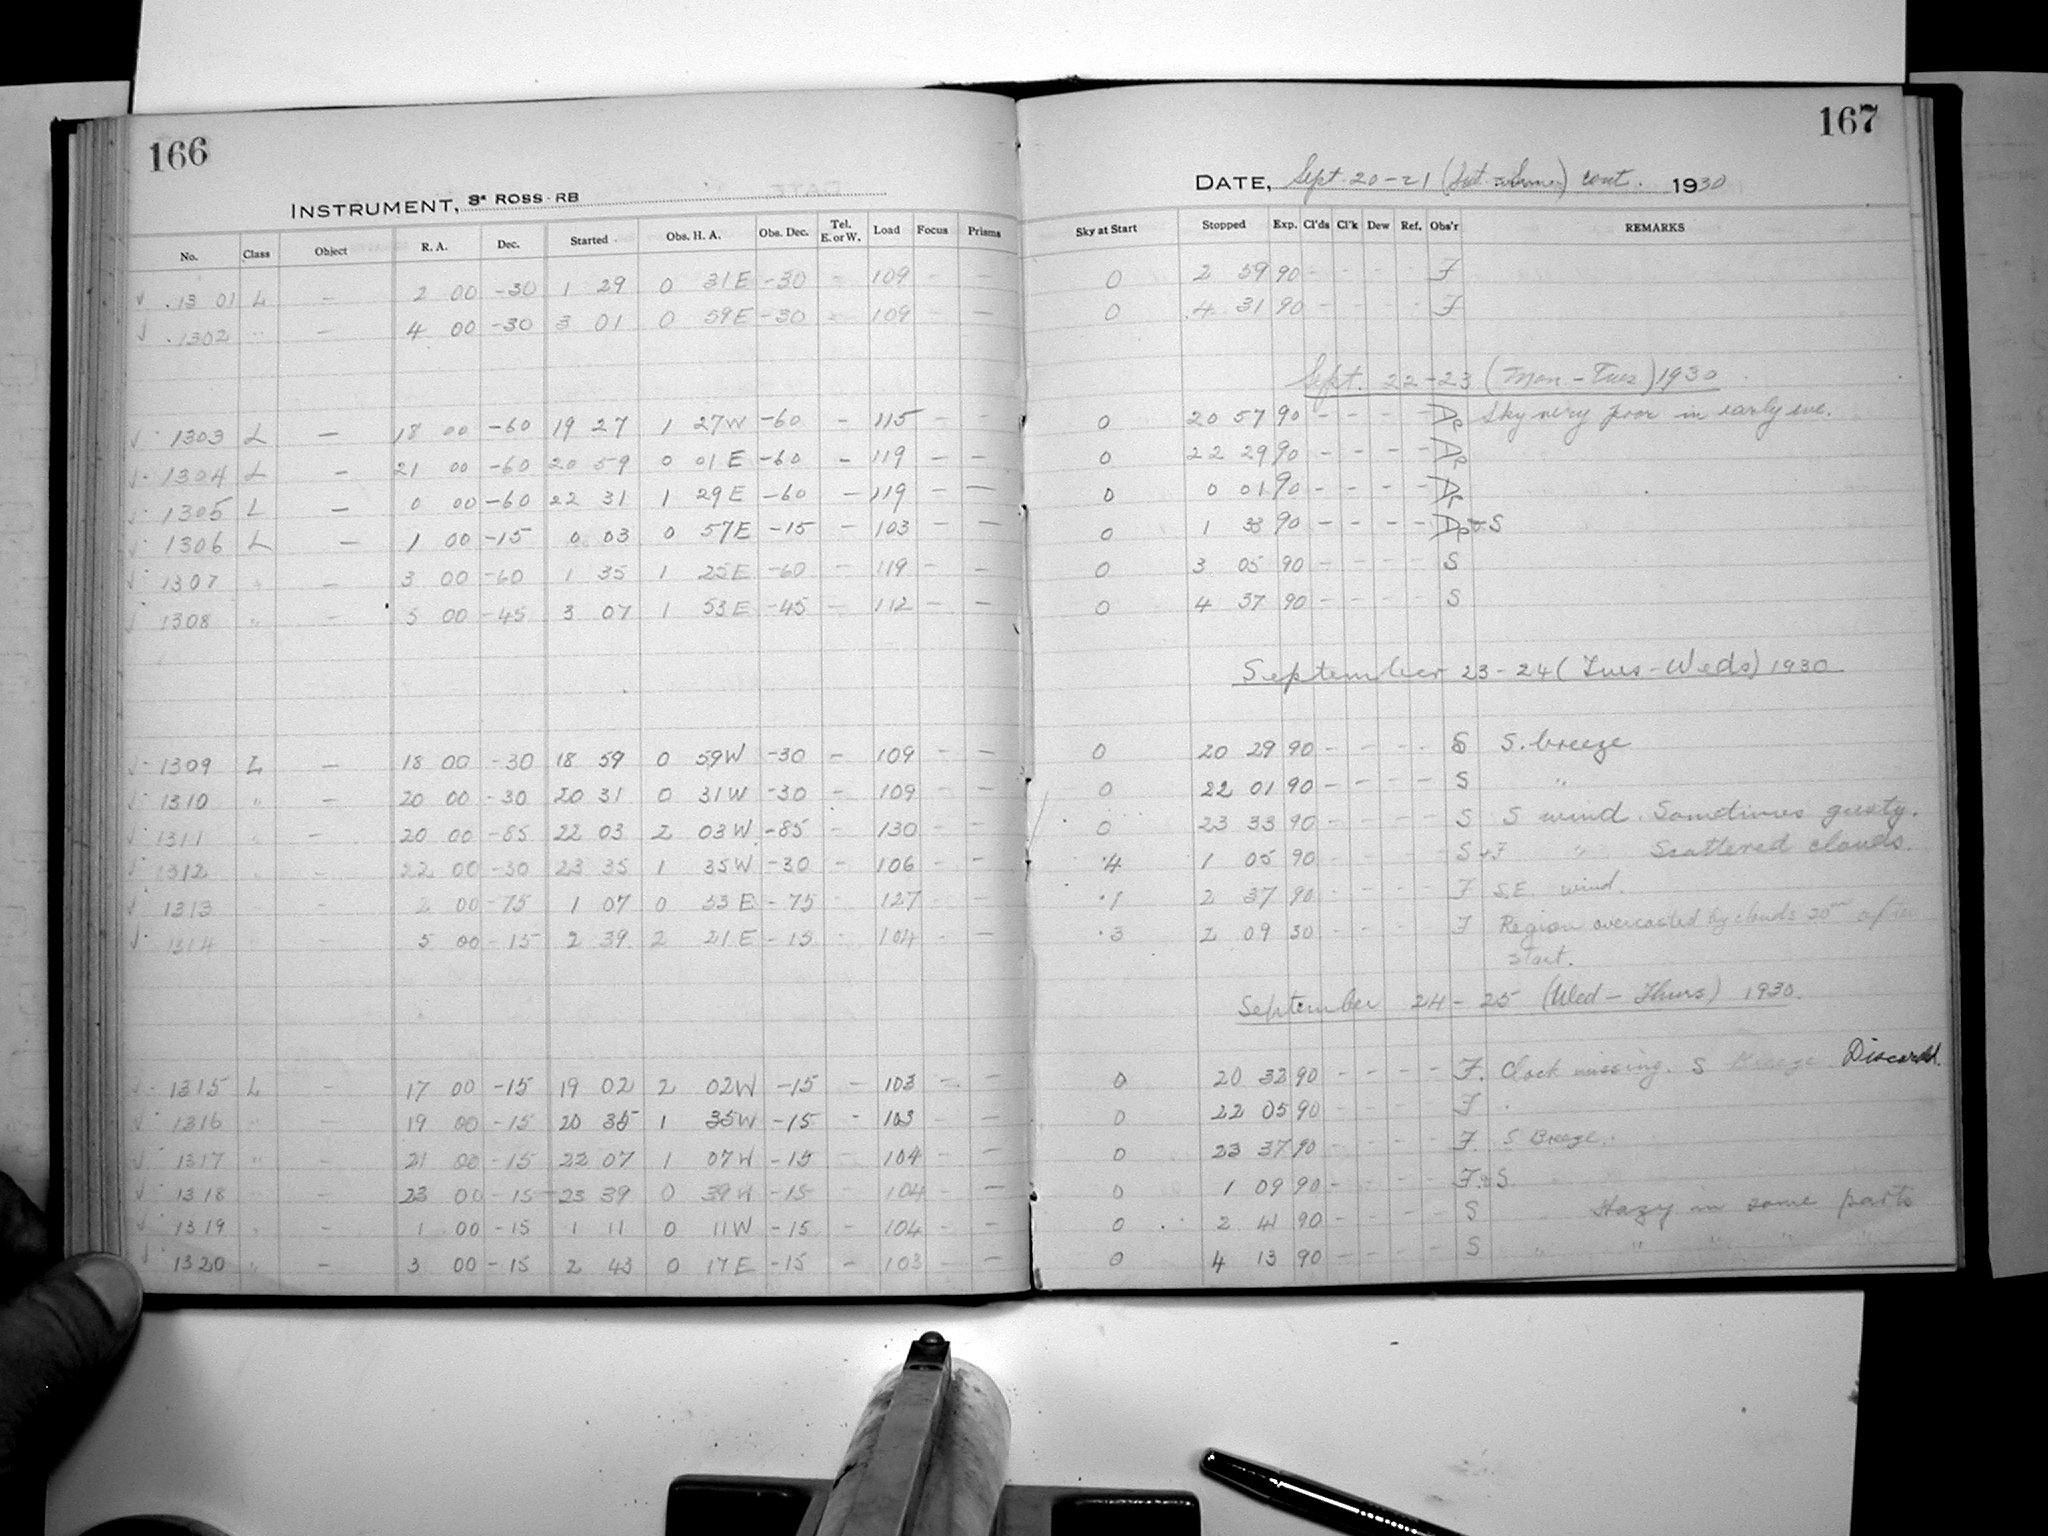 166
INSTRUMENT, 3" ROSS-RB
No. Class Object R. A. Dec. Started Obs. H. A. Obs. Dec. Tel. E. or W. Load Focus Prisms
√ . 13 01 L - 2 00 -30 1 29 0 31 E -30 - 109 - -
√ . 1302 " - 4 00 -30 3 01 0 59 E -30 - 109 - -
√ . 1303 L - 18 00 -60 19 27 1 27 W -60 - 115 - -
√ . 1304 L - 21 00 -60 20 59 0 01 E -60 - 119 - -
√ . 1305 L - 0 00 -60 22 31 1 29 E -60 - 119 - -
√ . 1306 L - 1 00 -15 0 03 0 57 E -15 - 103 - -
√ . 1307 " - 3 00 -60 1 35 1 25 E -60 - 119 - -
√ . 1308 " - 5 00 -45 3 07 1 53 E -45 - 112 - -
√ . 1309 L - 18 00 -30 18 59 0 59 W -30 - 109 - -
√ . 1310 " - 20 00 -30 20 31 0 31 W -30 - 109 - -
√ . 1311 " - 20 00 -85 22 03 2 03 W -85 - 130 - -
√ . 1312 " - 22 00 -30 23 35 1 35 W -30 - 106 - -
√ . 1313 " - 2 00 -75 1 07 0 53 E -75 - 127 - -
√ . 1314 " - 5 00 -15 2 39 2 21 E -15 - 104 - -
√ . 1315 L - 17 00 -15 19 02 2 02 W -15 - 103 - -
√ . 1316 " - 19 00 -15 20 35 1 35 W -15 - 103 - -
√ . 1317 " - 21 00 -15 22 07 1 07 W -15 - 104 - -
√ . 1318 - 23 00 -15 23 39 0 39 W -15 - 104 - -
√ . 1319 " - 1 00 -15 1 11 0 11 W -15 - 104 - -
√ . 1320 " - 3 00 -15 2 43 0 17 E -15 - 103 - -
167
DATE, Sept. 20-21 (Sat.-Sun.) cont. 1930
Sky at Start Stopped Exp. Cl'ds Cl'k Dew Ref. Obs'r REMARKS
0 2 59 90 - - - - F
0 4 31 90 - - - - F
Sept. 22-23 (Mon.-Tues) 1930
0 20 57 90 - - - - Dp Sky very poor in early eve.
0 22 29 90 - - - - Dp
0 0 01 90 - - - - Dp
0 1 33 90 - - - - Dp + S
0 3 05 90 - - - - S
0 4 37 90 - - - - S
September 23-24 (Tues-Weds) 1930
0 20 29 90 - - - - S S. breeze
0 22 01 90 - - - - S "
0 23 33 90 - - - - S S wind. Sometimes gusty.
.4 1 05 90 - - - - S + F " Scattered clouds.
.1 2 37 90 - - - - F S.E. wind.
.3 2 09 30 - - - - F Region overcasted by clouds 30m after
start.
September 24-25 (Wed-Thurs) 1930.
0 20 32 90 - - - - F. Clock missing. S Breeze. Discarded.
0 22 05 90 - - - - F
0 23 37 90 - - - - F. S Breeze.
0 1 09 90 - - - - F. + S.
0 2 41 90 - - - - S " Hazy in some parts
0 4 13 90 - - - - S " " " " "